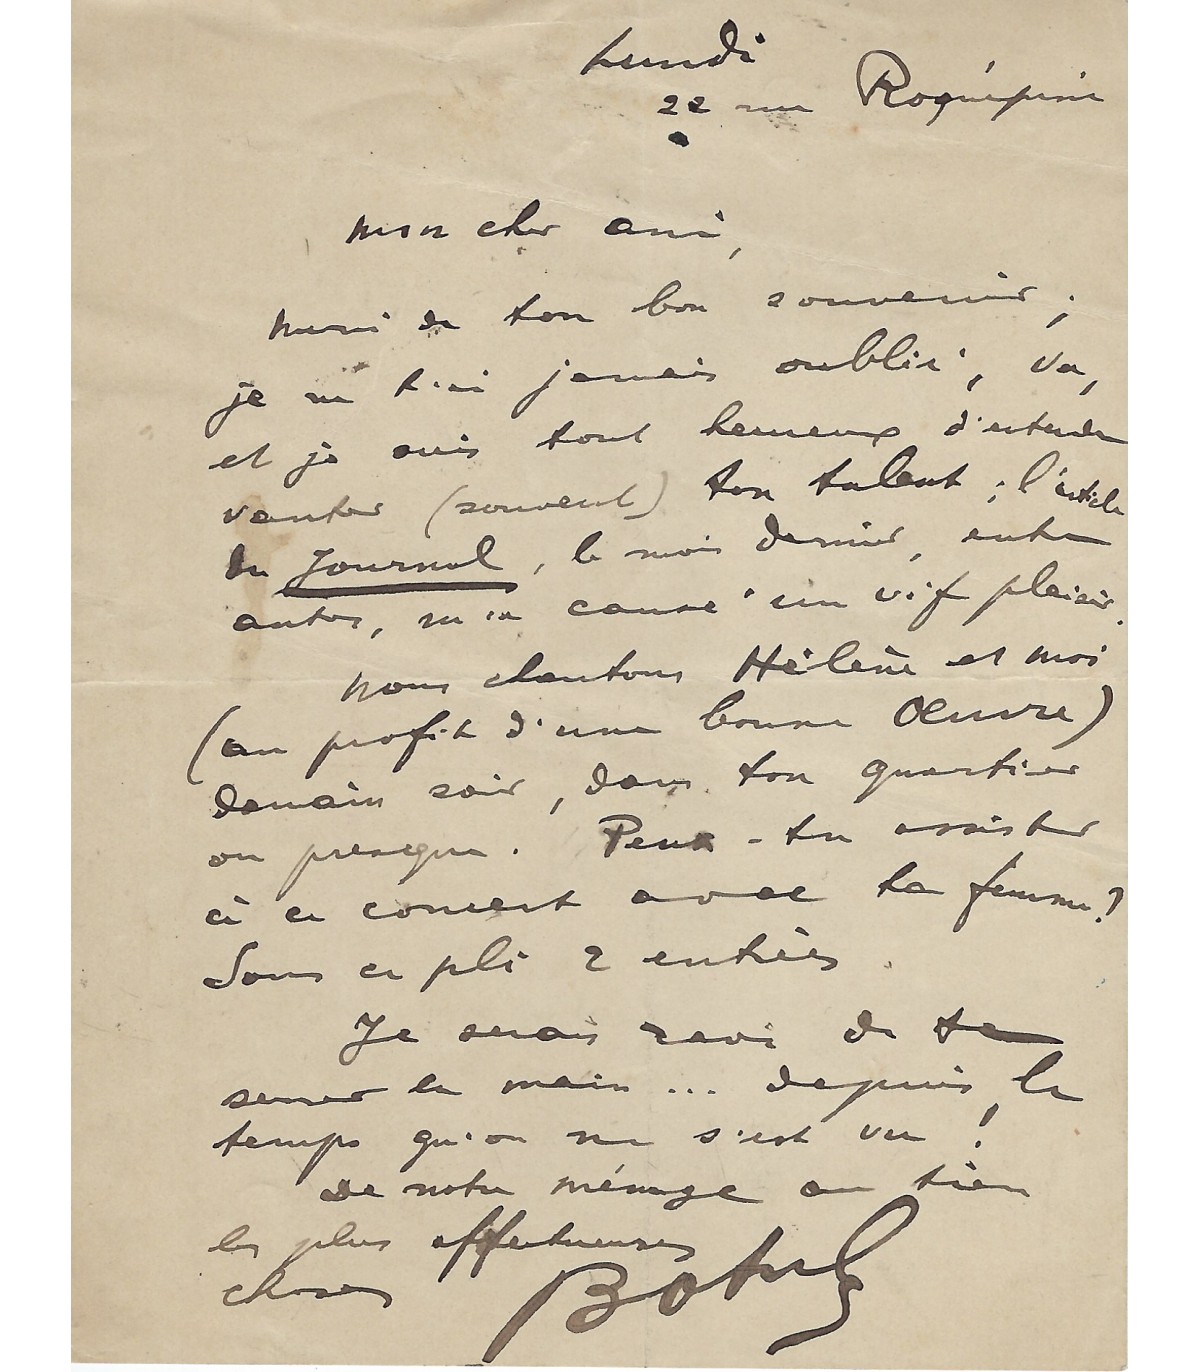 Lundi
22 rue Roquépine
Mon cher ami,
Merci de ton bon souvenir ;
je ne t'ai jamais oublié, va,
et je suis tout heureux d'entendre
vanter (souvent) ton talent ; l'article
du Journal, le mois dernier, entre
autres, m'a causé un vif plaisir.
Nous chantons Hélène et moi
(au profit d'une bonne Œuvre)
demain soir, dans ton quartier
ou presque. Peux-tu assister
à ce concert avec ta femme ?
Sous ce pli 2 entrées.
Je serais ravi de te
serrer la main ... depuis le
temps qu'on ne s'est vu !
De notre ménage au tien
les plus affectueuses
choses